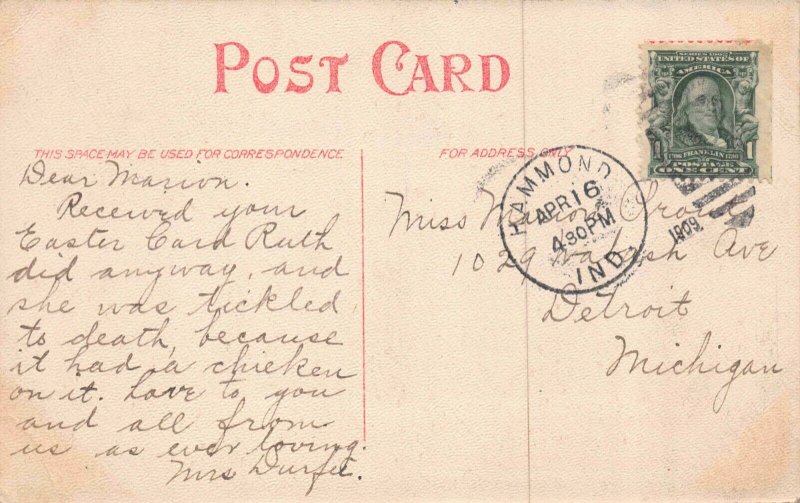 POST CARD
THIS SPACE MAY BE USED FOR CORRESPONDENCE
FOR ADDRESS ONLY
Dear Marion.
Received your
Easter Card Ruth
did anyway, and
she was tickled
to death, because
it had a chicken
on it. Love to you
and all from
us as ever loving.
Mrs Durfee.
Miss Marion
1029 Wabash Ave
Detroit
Michigan
HAMMOND
APR 16
4 30 PM
IND.
1909
SERIES 1902
UNITED STATES OF
AMERICA
1 1
FRANKLIN
POSTAGE
ONE CENT